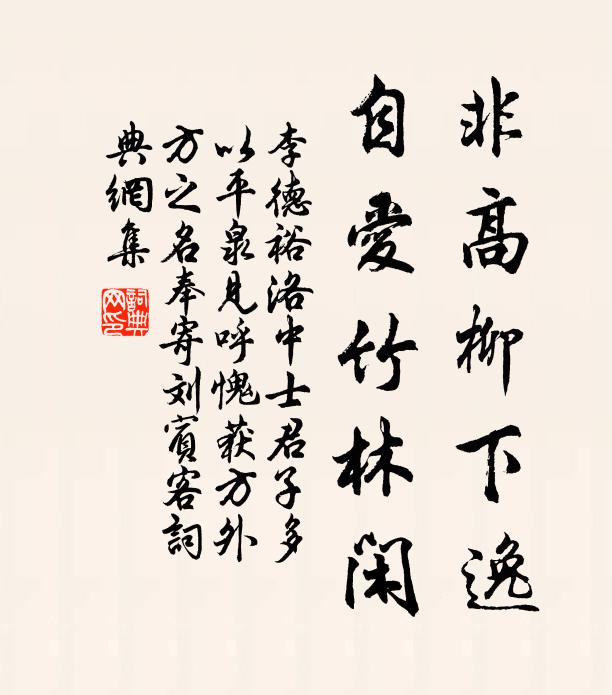 非高柳下逸
自愛竹林閑
李德裕洛中士君子多
以平泉見呼愧获方外
方之名奉寄刘賓客詞
典網集
詞典
网印